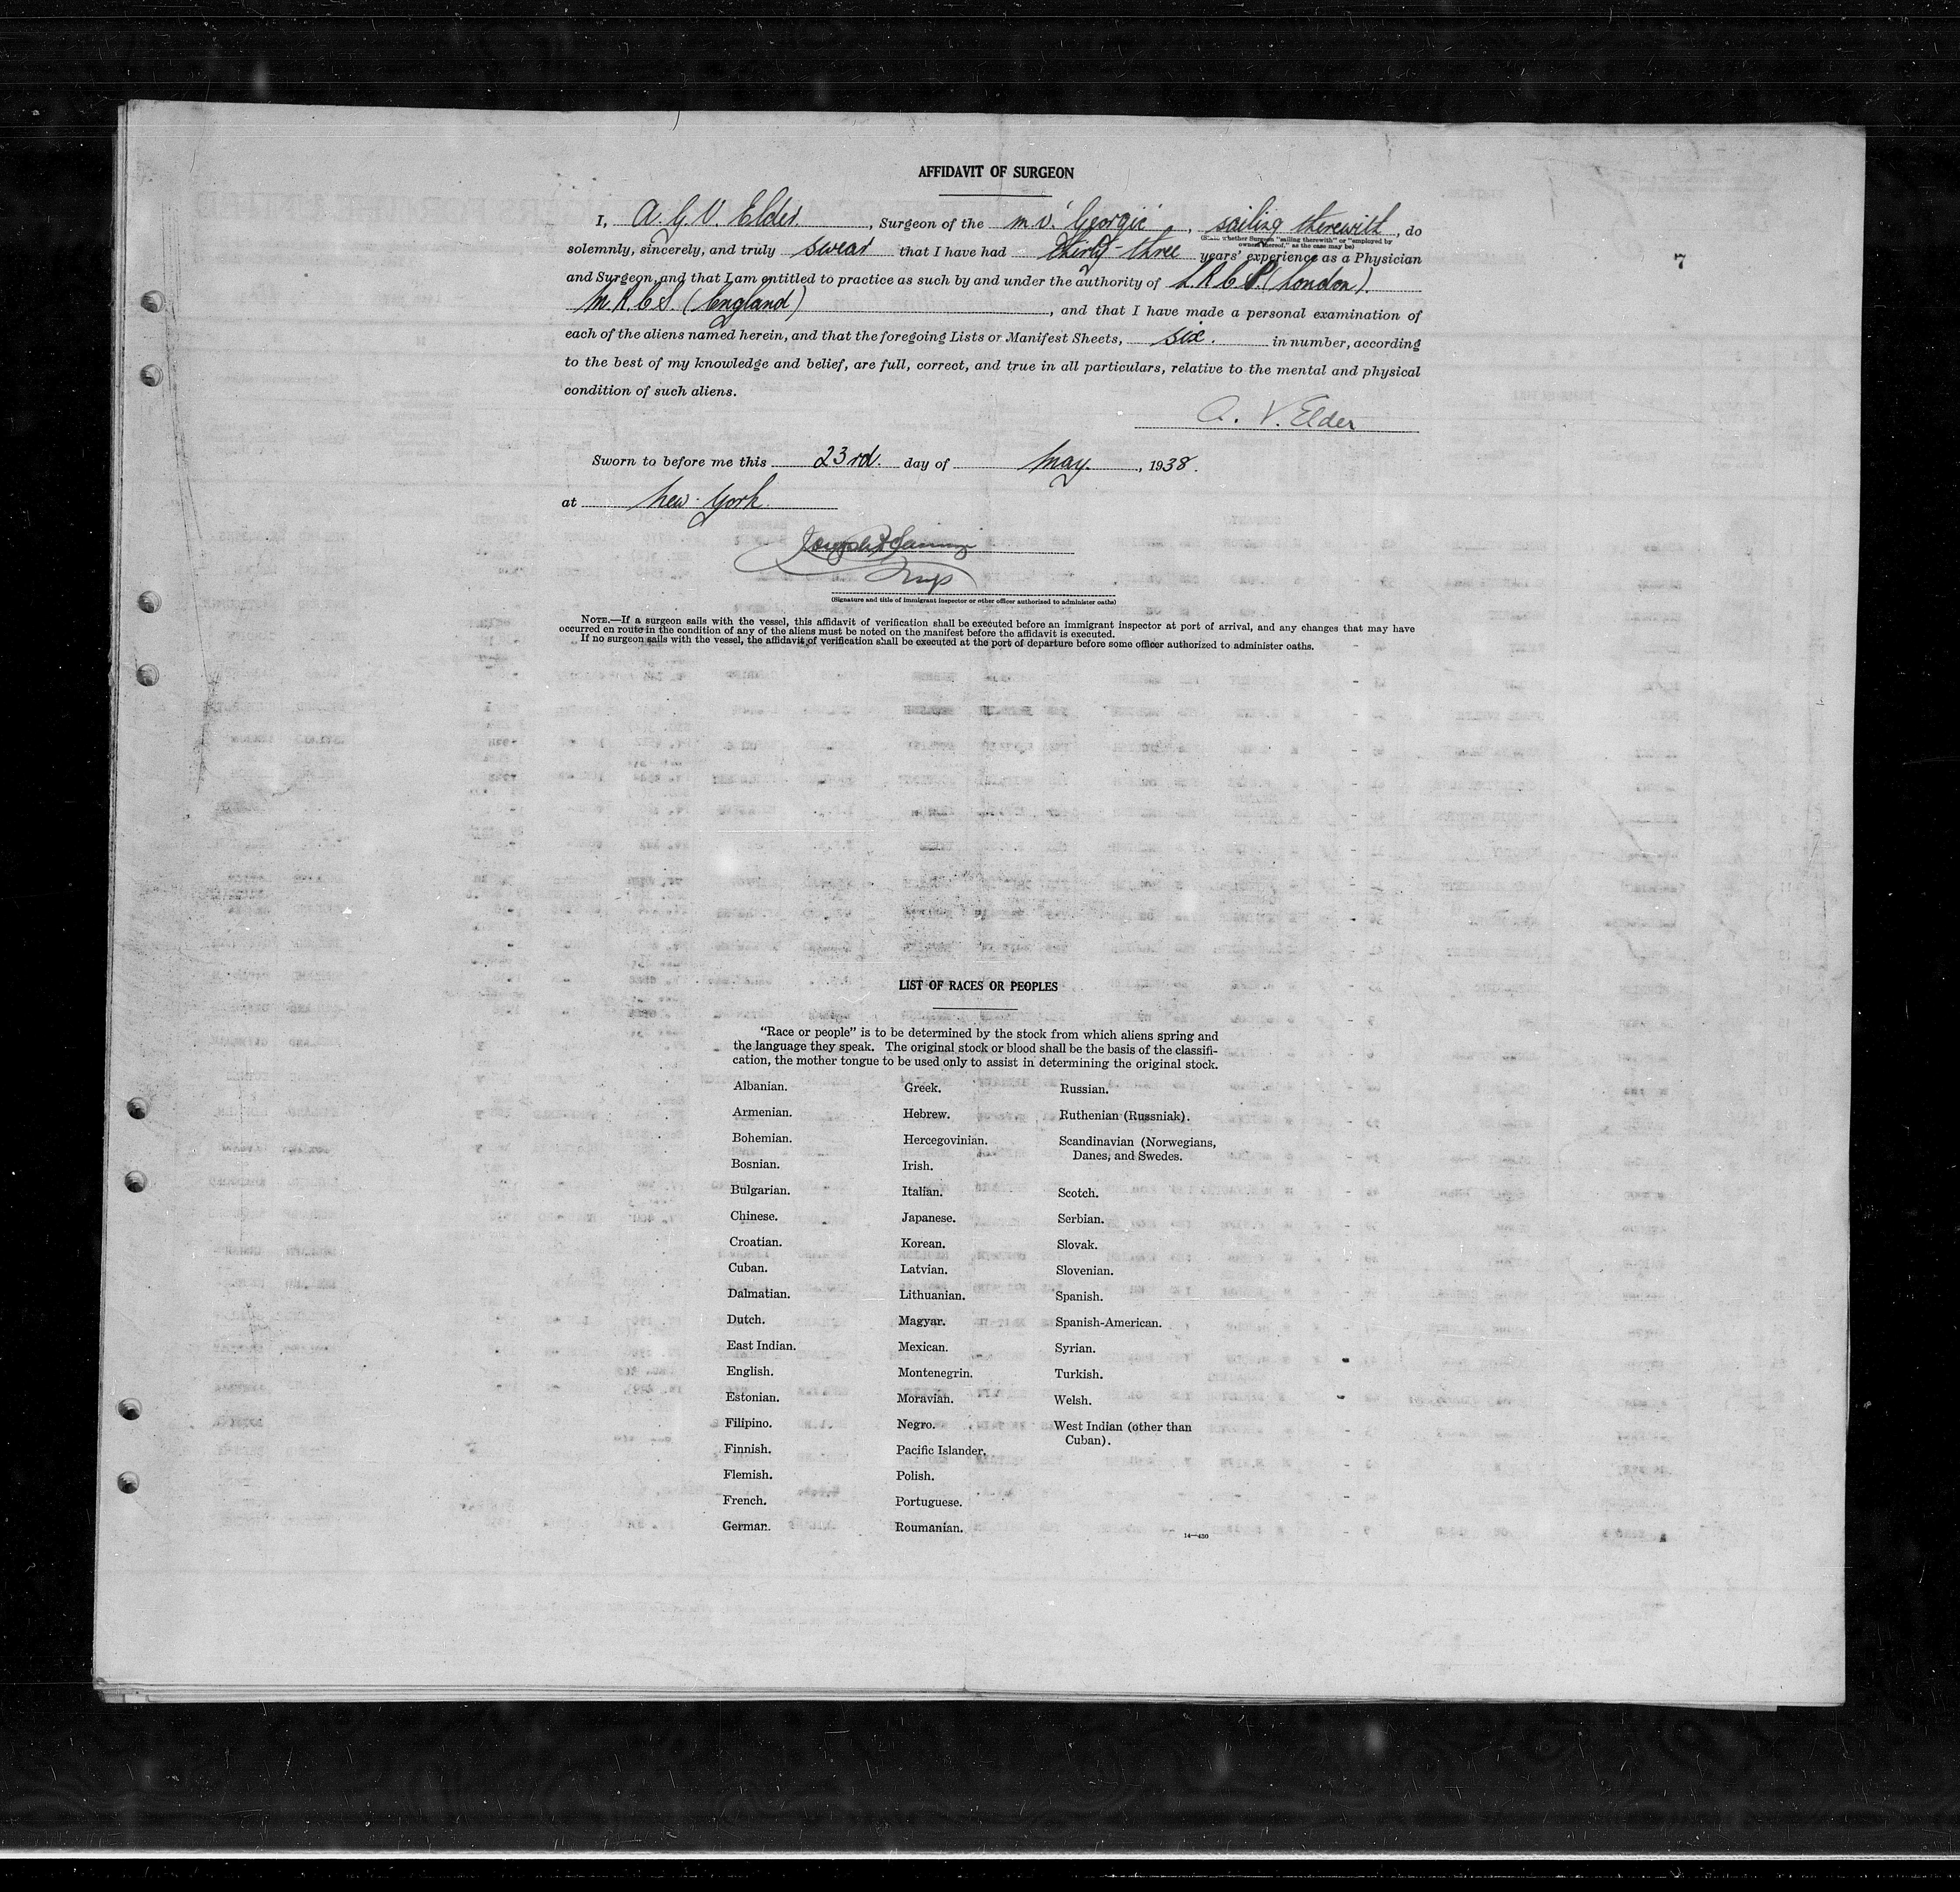 AFFIDAVIT OF SURGEON
7
I, A. G. V. Elder, Surgeon of the m.v. "Georgic", sailing therewith, do
(State whether Surgeon "sailing therewith" or "employed by
owners thereof," as the case may be)
solemnly, sincerely, and truly swear that I have had thirty-three years' experience as a Physician
and Surgeon, and that I am entitled to practice as such by and under the authority of L.R.C.P. (London).
M.R.C.S. (England), and that I have made a personal examination of
each of the aliens named herein, and that the foregoing Lists or Manifest Sheets, six. in number, according
to the best of my knowledge and belief, are full, correct, and true in all particulars, relative to the mental and physical
condition of such aliens.
A. V. Elder
Sworn to before me this 23rd. day of May, 1938.
at New York
Insp
(Signature and title of immigrant inspector or other officer authorized to administer oaths)
NOTE.—If a surgeon sails with the vessel, this affidavit of verification shall be executed before an immigrant inspector at port of arrival, and any changes that may have
occurred en route in the condition of any of the aliens must be noted on the manifest before the affidavit is executed.
If no surgeon sails with the vessel, the affidavit of verification shall be executed at the port of departure before some officer authorized to administer oaths.
LIST OF RACES OR PEOPLES
"Race or people" is to be determined by the stock from which aliens spring and
the language they speak. The original stock or blood shall be the basis of the classifi-
cation, the mother tongue to be used only to assist in determining the original stock.
Albanian.
Armenian.
Bohemian.
Bosnian.
Bulgarian.
Chinese.
Croatian.
Cuban.
Dalmatian.
Dutch.
East Indian.
English.
Estonian.
Filipino.
Finnish.
Flemish.
French.
German.
Greek.
Hebrew.
Hercegovinian.
Irish.
Italian.
Japanese.
Korean.
Latvian.
Lithuanian.
Magyar.
Mexican.
Montenegrin.
Moravian.
Negro.
Pacific Islander.
Polish.
Portuguese.
Roumanian.
Russian.
Ruthenian (Russniak).
Scandinavian (Norwegians,
Danes, and Swedes.
Scotch.
Serbian.
Slovak.
Slovenian.
Spanish.
Spanish-American.
Syrian.
Turkish.
Welsh.
West Indian (other than
Cuban).
14—430